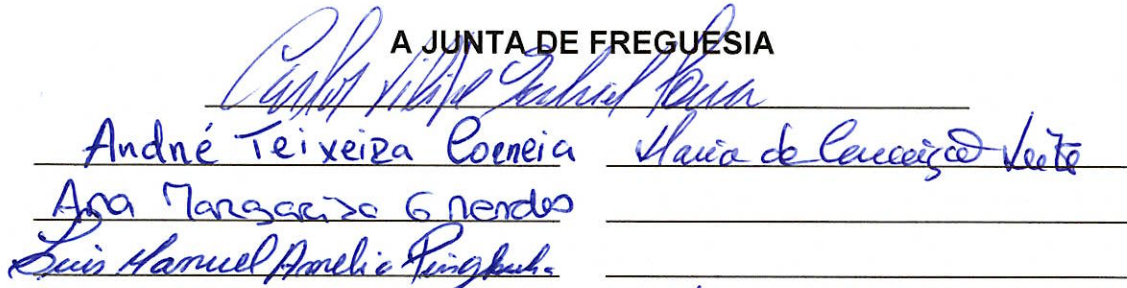 A JUNTA DE FREGUESIA
Carlos Filipe
André Teixeira Correia Maria da Conceição Leite
Ana Margarida G Mendes
Luis Manuel Amelio